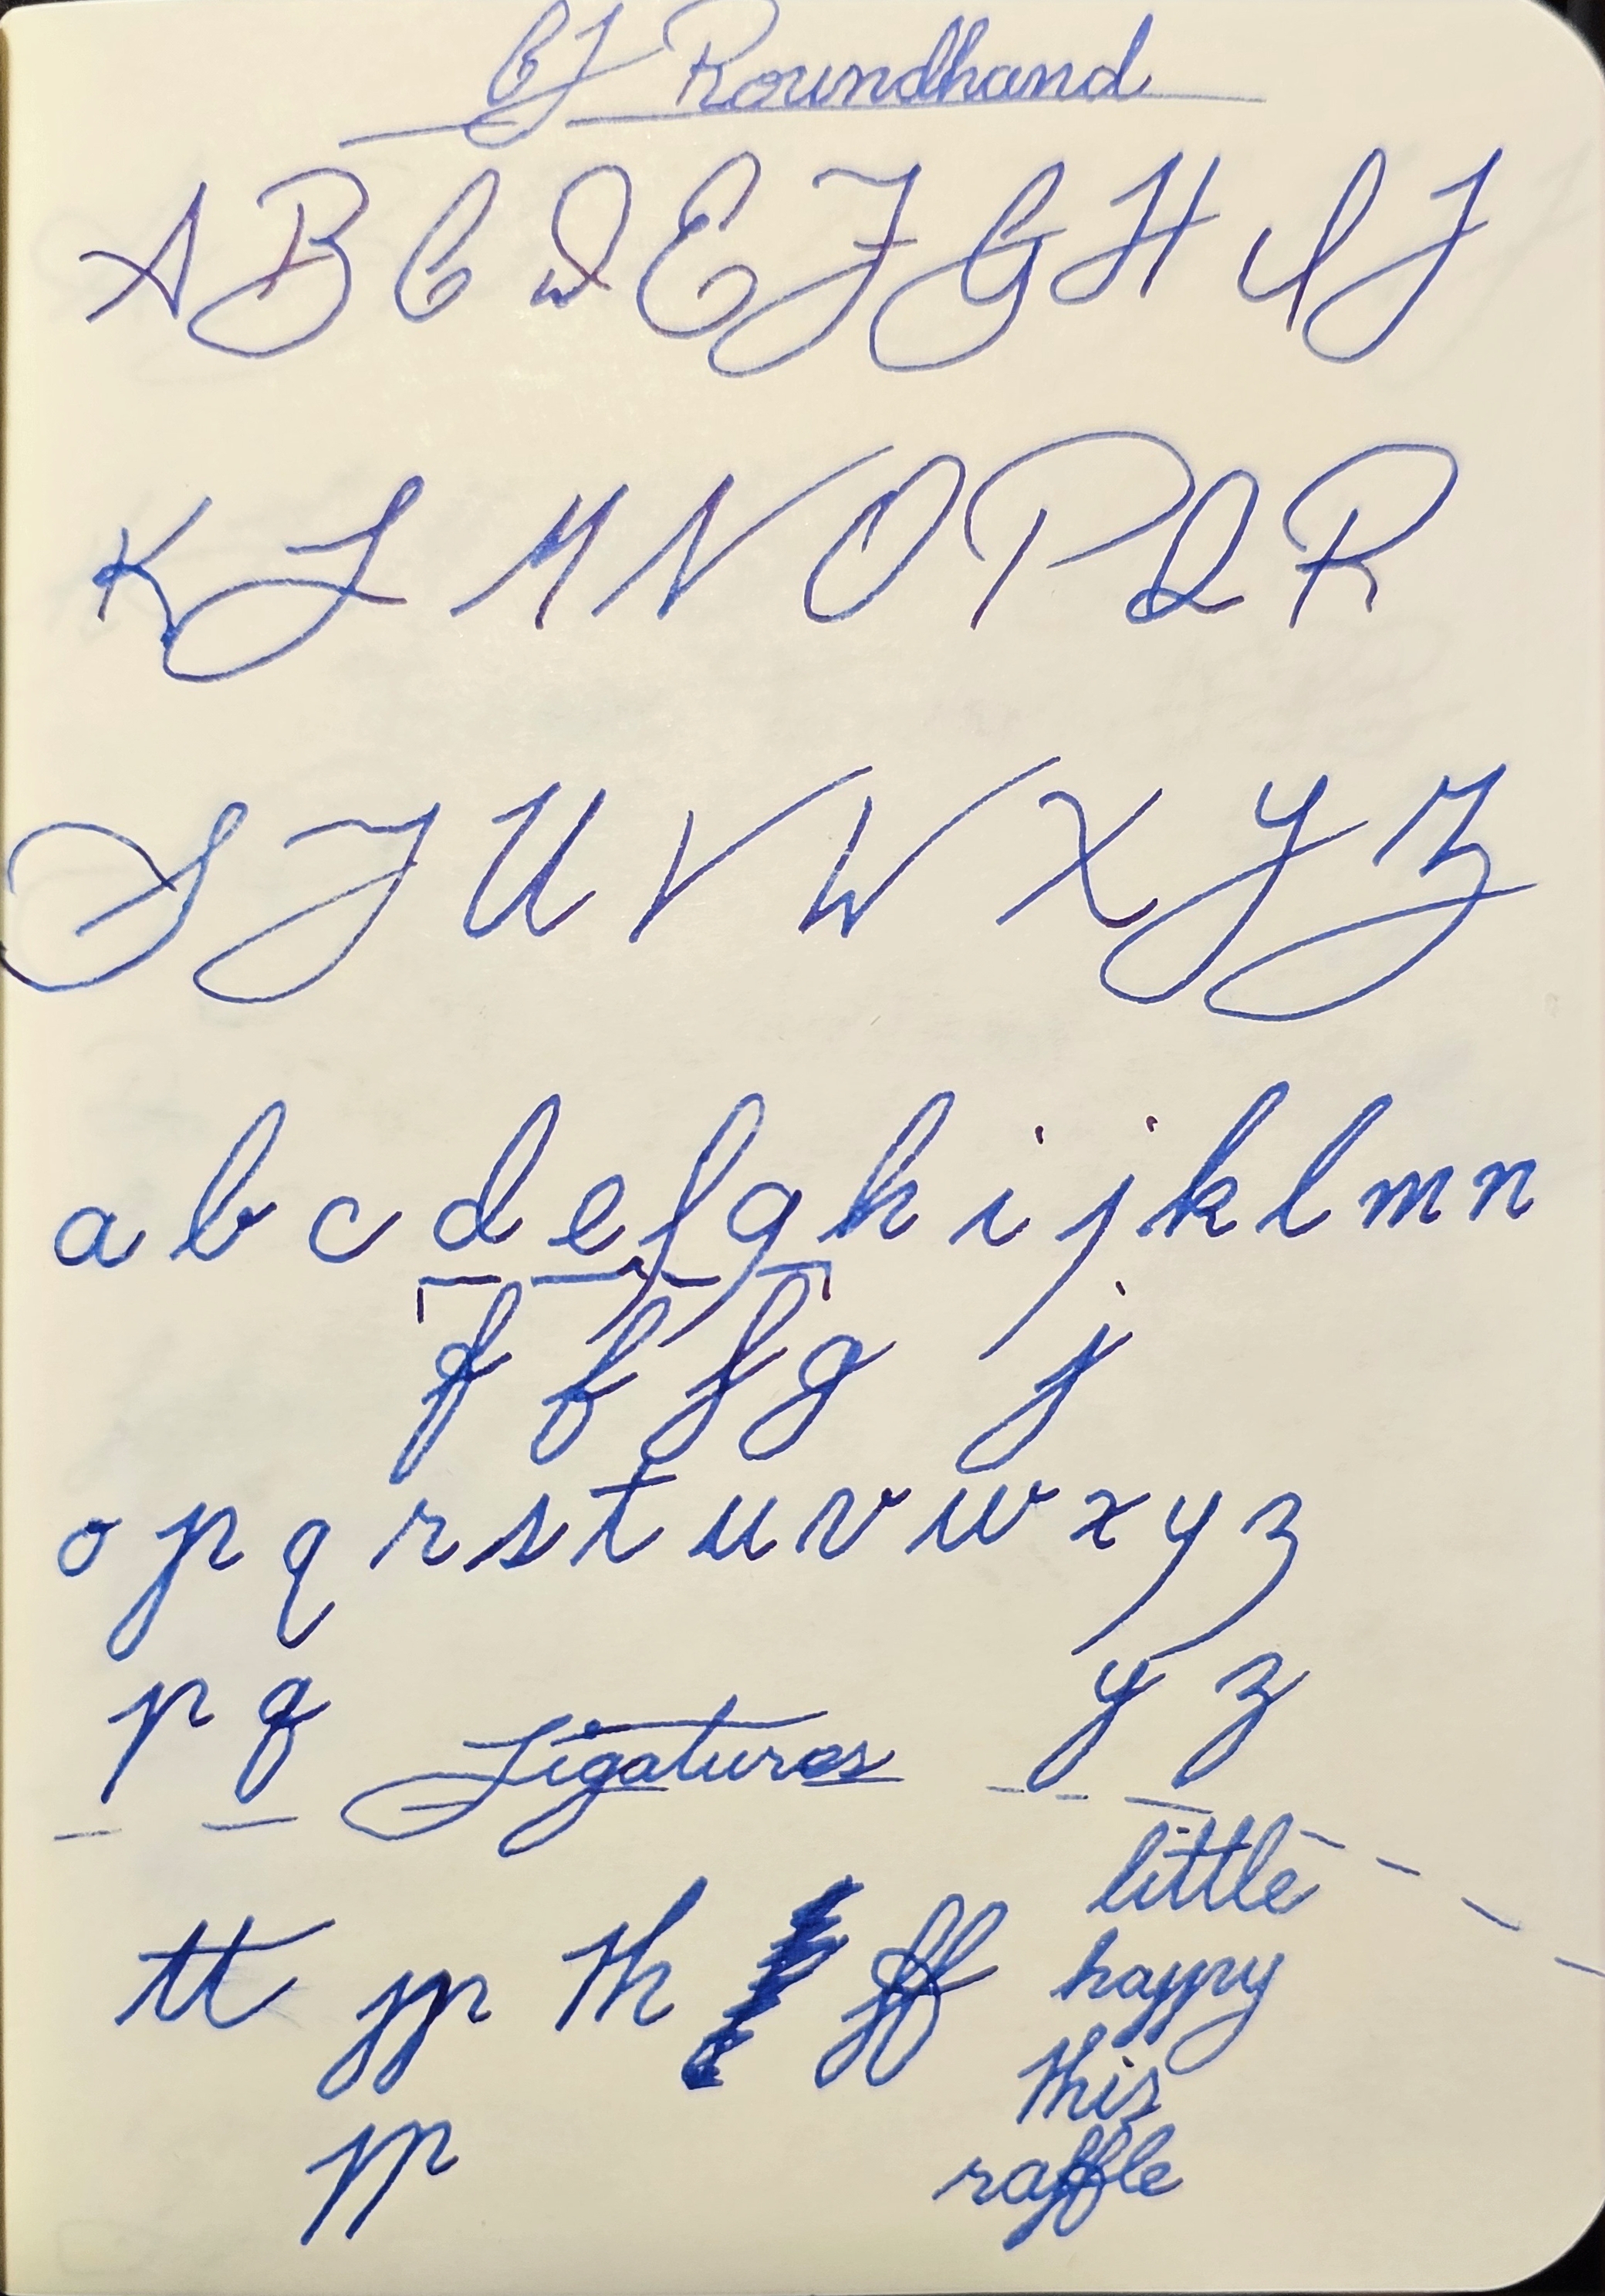 CJ Roundhand
A B C D E F G H I J
K L M N O P Q R
S T U V W X Y Z
a b c d e f g h i j k l m n
f f f g j
o p q r s t u v w x y z
p q y z
Ligatures
tt pp th ff
pp
little
happy
this
raffle